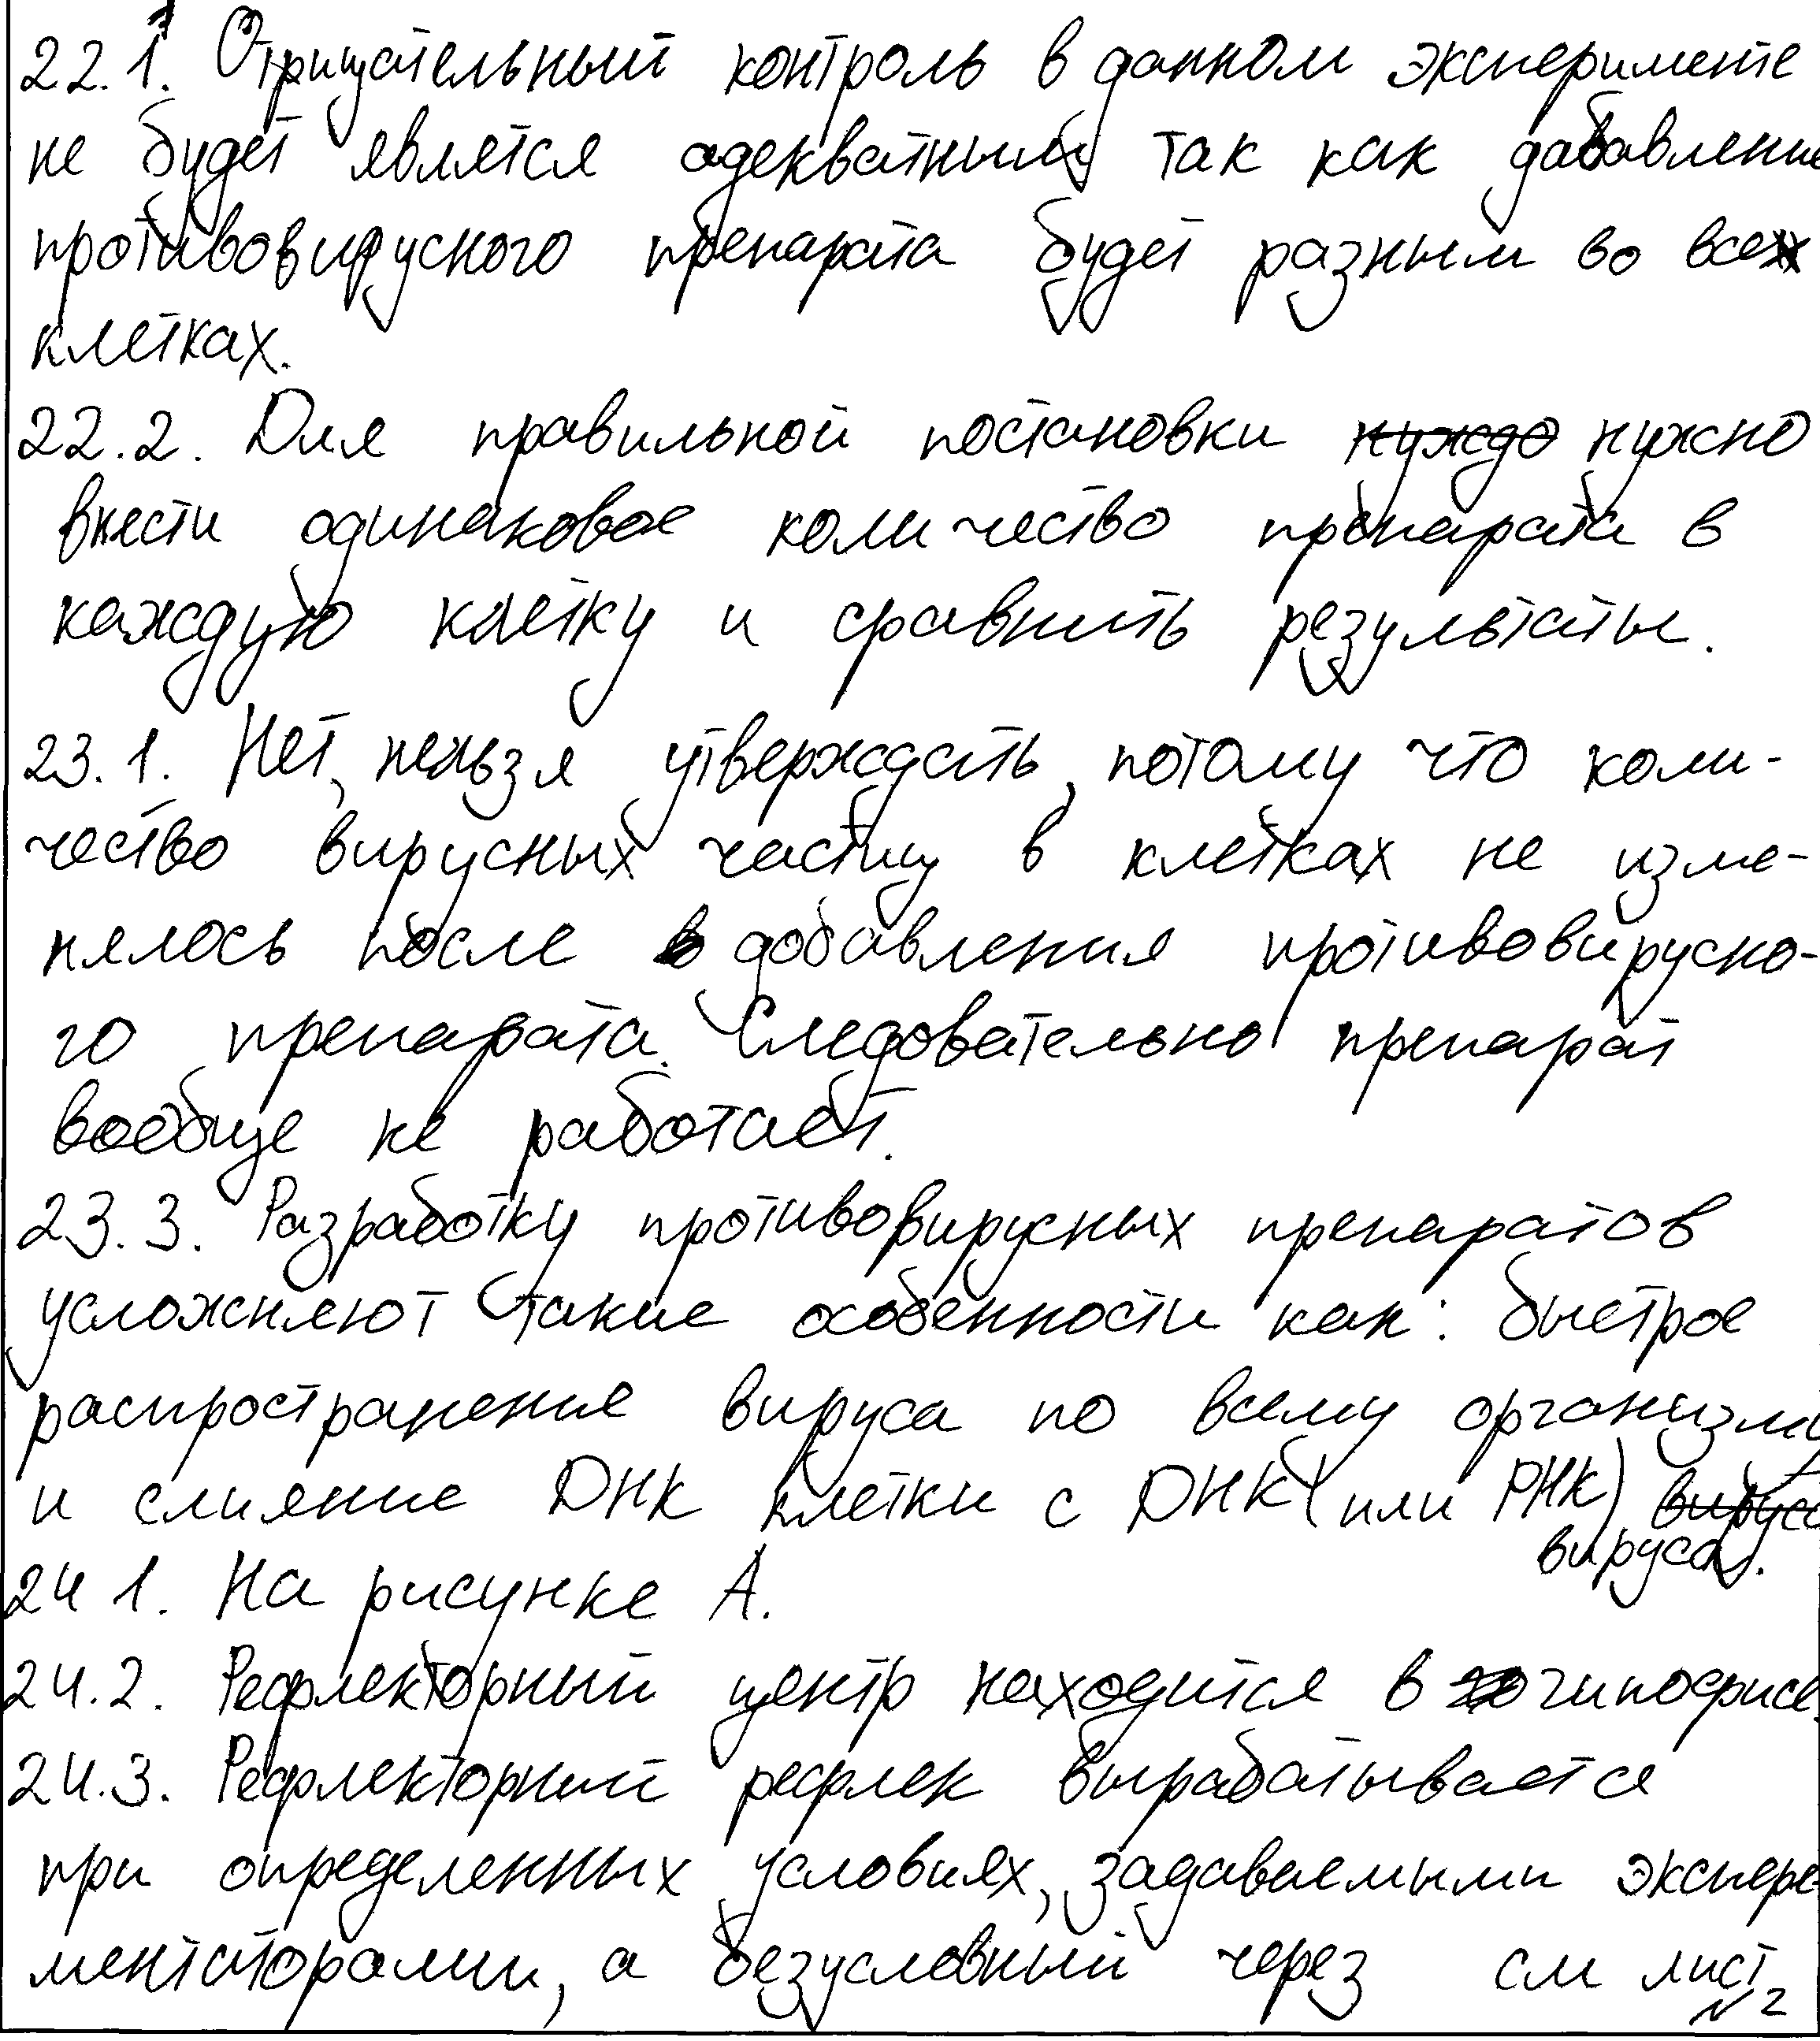 22.1. Отрицательный контроль в данном эксперименте
не будет является адекватным так как дабавление
противовирусного препарата будет разным во всех
клетках.
22.2. Для правильной постановки нуждо нужно
внести одинаковое количество препарата в
каждую клетку и сравнить результаты.
23.1. Нет, нельзя утверждать, потому что коли-
чество вирусных частиц в клетках не изме-
нялось после добавления противовирусно-
го препарата. Следовательно препарат
вообще не работает.
23.3. Разработку противовирусных препаратов
усложняют такие особенности как: быстрое
распространение вируса по всему организму
и слияние ДНК клетки с ДНК (или РНК) вируса
вируса.
24 1. На рисунке А.
24.2. Рефлекторный центр находится в гипофисе.
24.3. Рефлекторний рефлек вырабатывается
при определенных условиях, задаваемыми экспере
ментаторами, а безусловный через см лист
№2